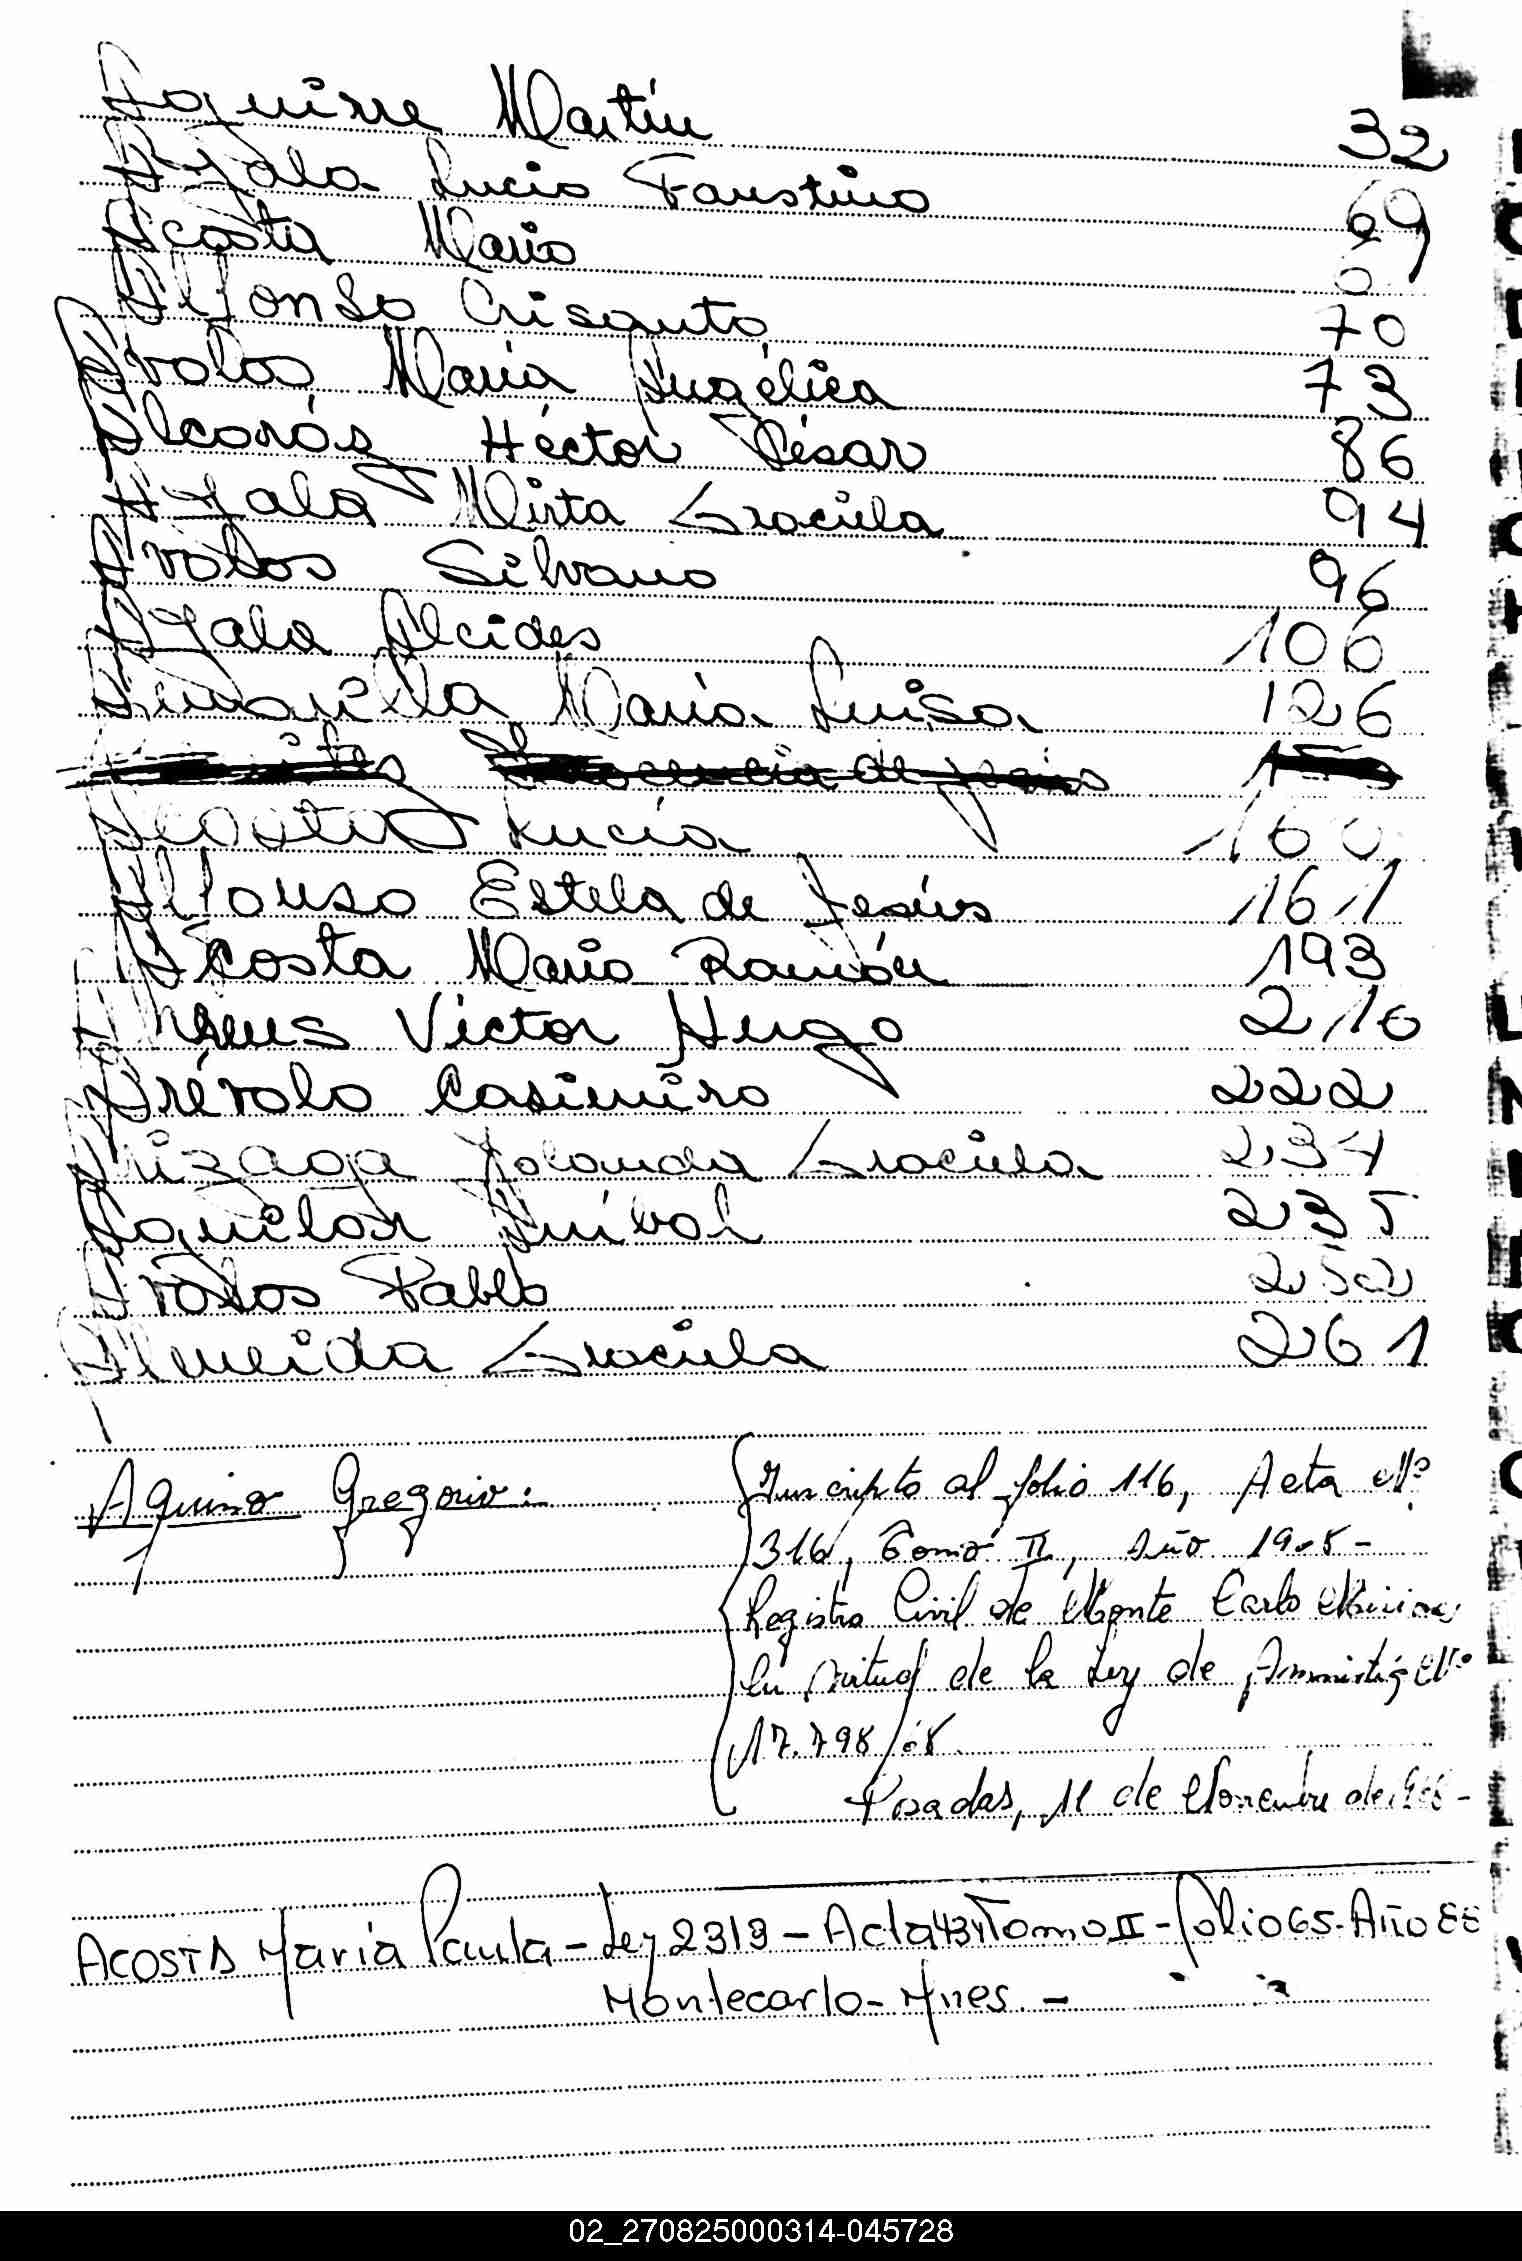 Aguirre Martín 32
Ayala Lucio Faustino 69
Acosta Mario 6
Alfonso Crisanto 70
Avalos María Angélica 73
Alcaráz Héctor César 86
Ayala Mirta Graciela 94
Avalos Silvano 96
Ayala Alcides 106
María Luisa 126
de Jesús
Acosta Lucía 160
Alfonso Estela de Jesús 161
Acosta Mario Ramón 193
Victor Hugo 210
Arévalo Casimiro 222
Yolanda Graciela 234
Aguilar Anibal 235
Avalos Pablo 252
Almeida Graciela 261
Aquino Gregorio:
Inscripto al folio 116, Acta Nº
316, Tomo II, Año
Registro Civil de Monte Carlo Misiones
En virtud de la Ley de Amnistía Nº
17.798/68.
Posadas, 11 de Noviembre de
ACOSTA María Paula - Ley 2319 - Acta 434 Tomo II - folio 65 - Año 88
Montecarlo - Mnes. -
02_270825000314-045728